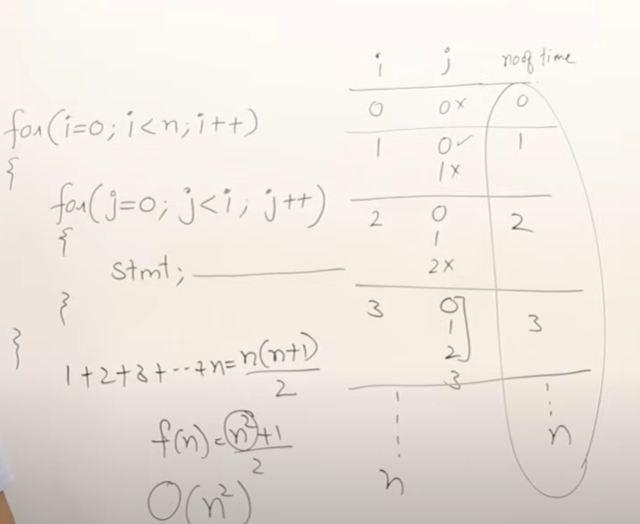 for(i=0; i<n; i++)
{
for(j=0; j<i; j++)
{
stmt;
}
}
1+2+3+---+n=n(n+1)/2
f(n)=n²+1/2
O(n²)
i j no of time
0 0× 0
1 0✓ 1
1×
2 0 2
1
2×
3 0 3
1
2
3
n n